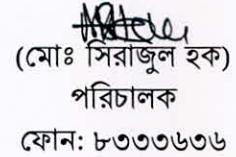 (মোঃ সিরাজুল হক)
পরিচালক
ফোন: ৮৩৩৩৬৩৬